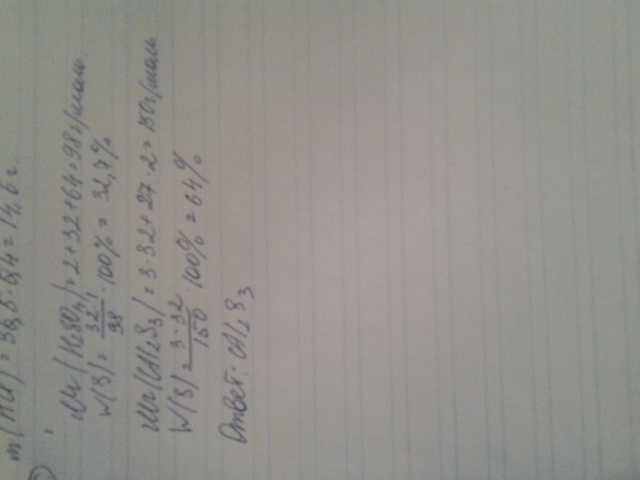 m(HCl) = 36,5 · 0,4 = 14,6 г.
Mr(H₂SO₄) = 2 + 32 + 64 = 98 г/моль
W(S) = 32·1/98 · 100% = 32,7%
Mr(Al₂S₃) = 3·32 + 27·2 = 150 г/моль
W(S) = 3·32/150 · 100% = 64%
Ответ: Al₂S₃